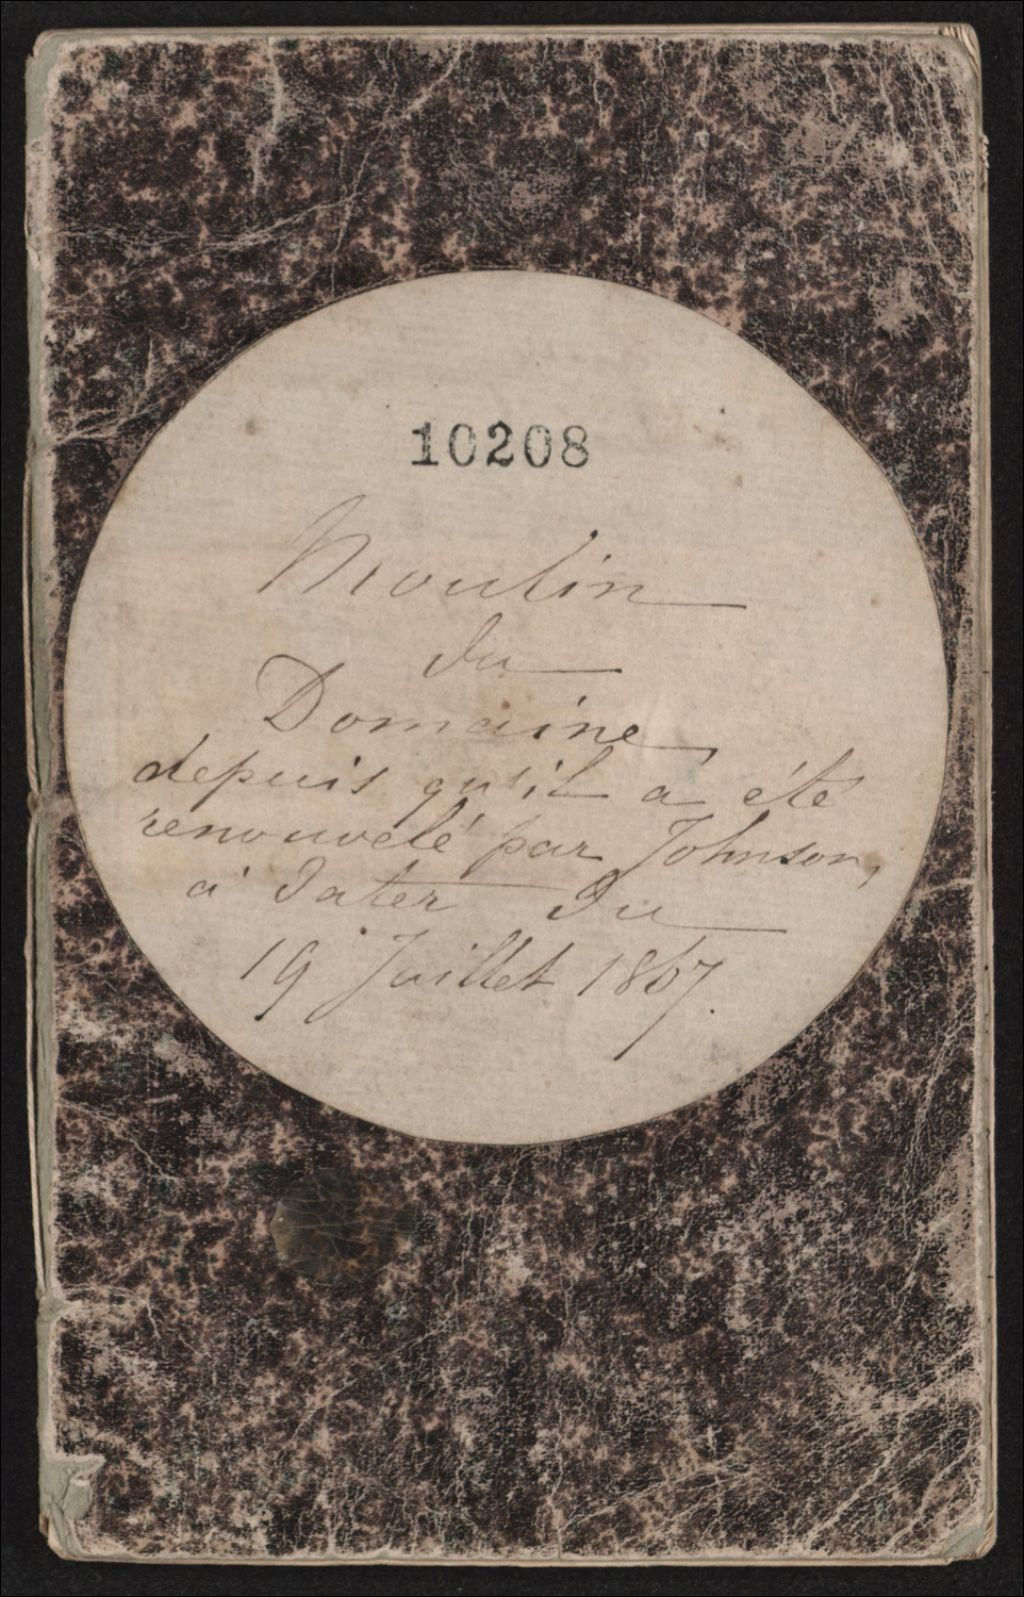 10208
Moulin
du
Domaine,
depuis qu'il a été
renouvelé par Johnson,
à dater du
19 Juillet 1867.